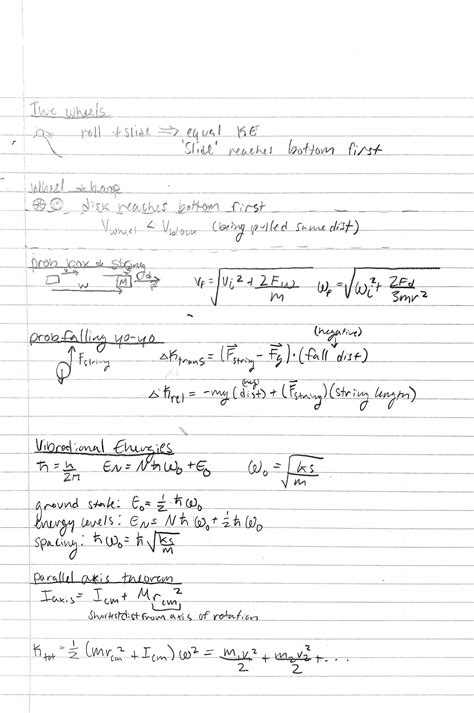 Two wheels
roll + slide ⟹ equal KE
'Slide' reaches bottom first
Wheel + hoop
disk reaches bottom first
V_wheel < V_block (being pulled same dist)
prob box + string
w M d F
V_f = √(V_i² + 2Fw/m) ω_f = √(ω_i² + 2Fd/3mr²)
prob falling yo-yo
(negative)
F_string ΔK_trans = (F⃗_string - F⃗_g)·(fall dist)
(neg)
ΔK_rel = -mg(dist) + (F⃗_string)(string length)
Vibrational Energies
ħ = h/2π E_N = Nħω₀ + E₀ ω₀ = √(ks/m)
ground state: E₀ = ½ħω₀
energy levels: E_N = Nħω₀ + ½ħω₀
spacing: ħω₀ = ħ√(ks/m)
parallel axis theorem
I_axis = I_cm + Mr_cm²
shortest dist from axis of rotation
K_tot = ½(mr_cm² + I_cm)ω² = m₁v₁²/2 + m₂v₂²/2 + ...